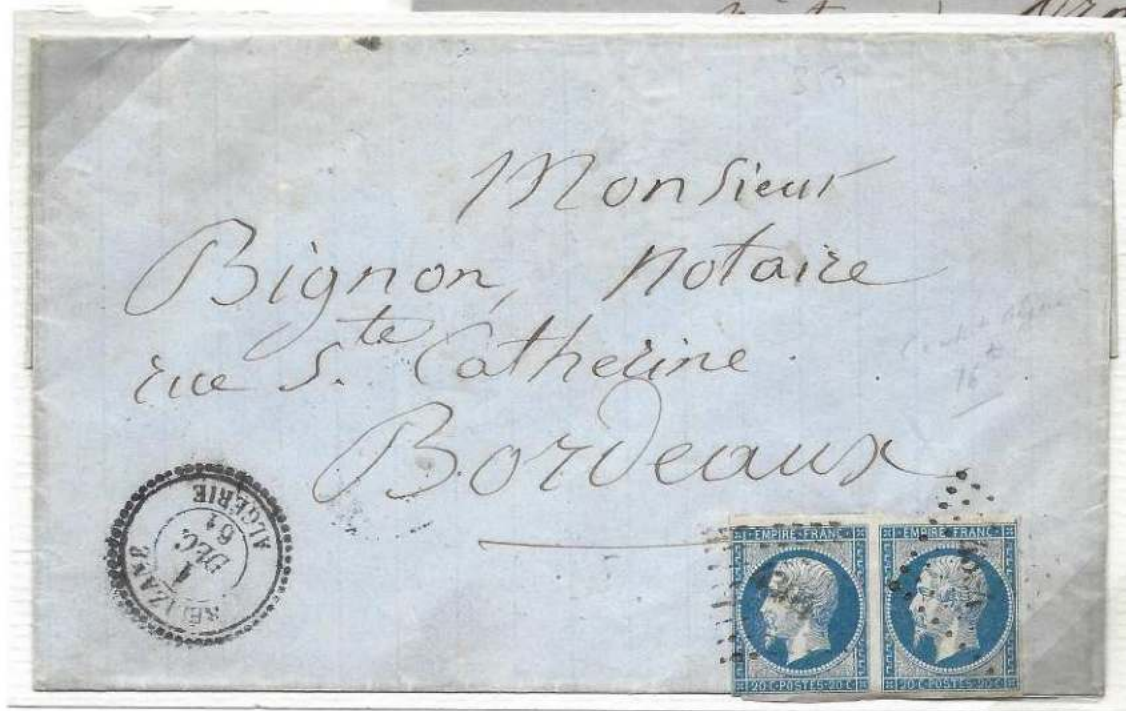 Monsieur
Bignon, Notaire
rue Ste. Catherine
Bordeaux
RELIZANE
1
DEC.
61
ALGERIE
EMPIRE FRANC
20 C POSTES 20 C
EMPIRE FRANC
20 C POSTES 20 C